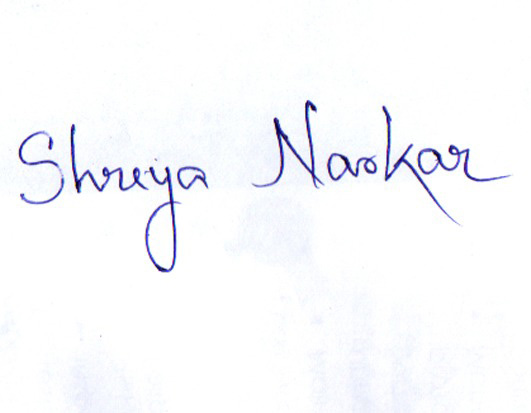 Shreya Naskar